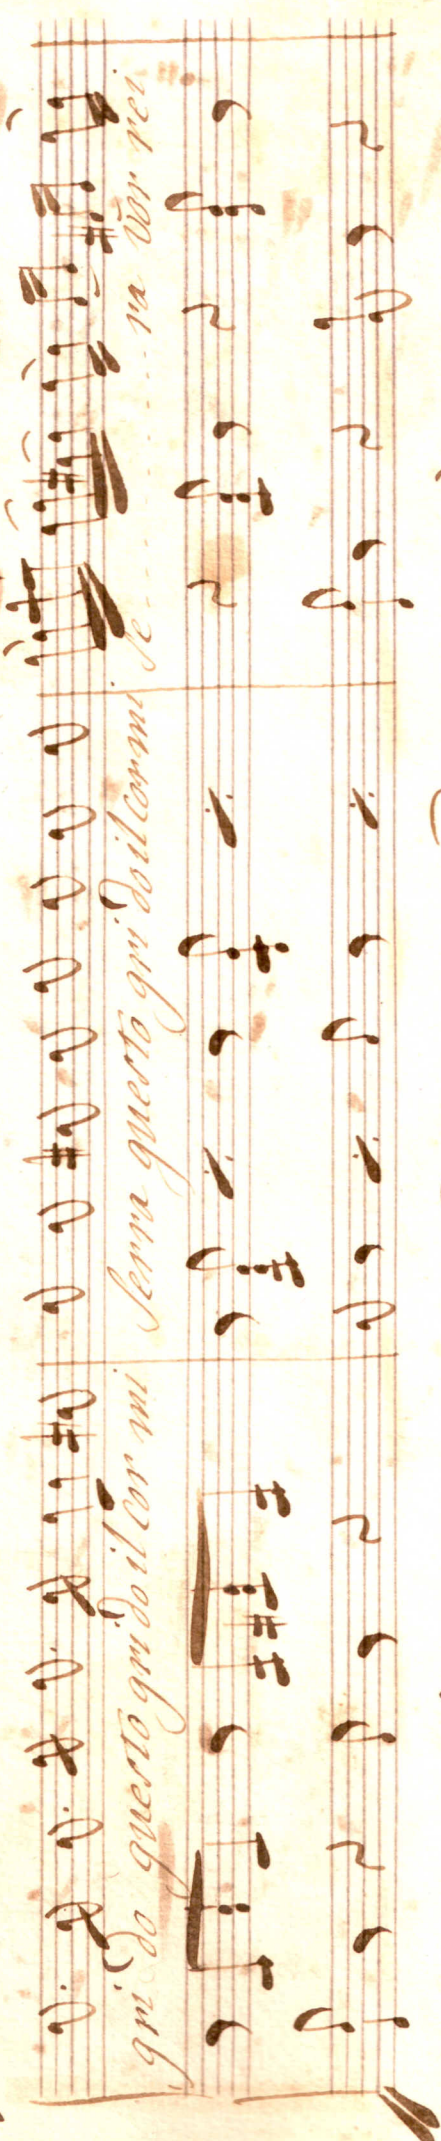 gri do questo gri do il cor mi serra questo gri do il cor mi se . . . . . . . . ra vor rei